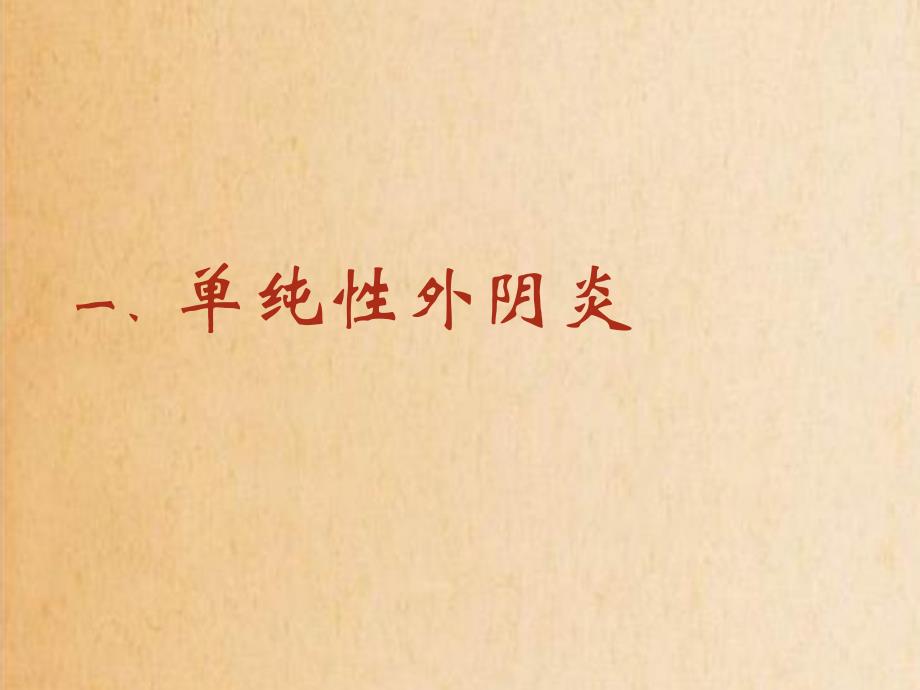 一、单纯性外阴炎